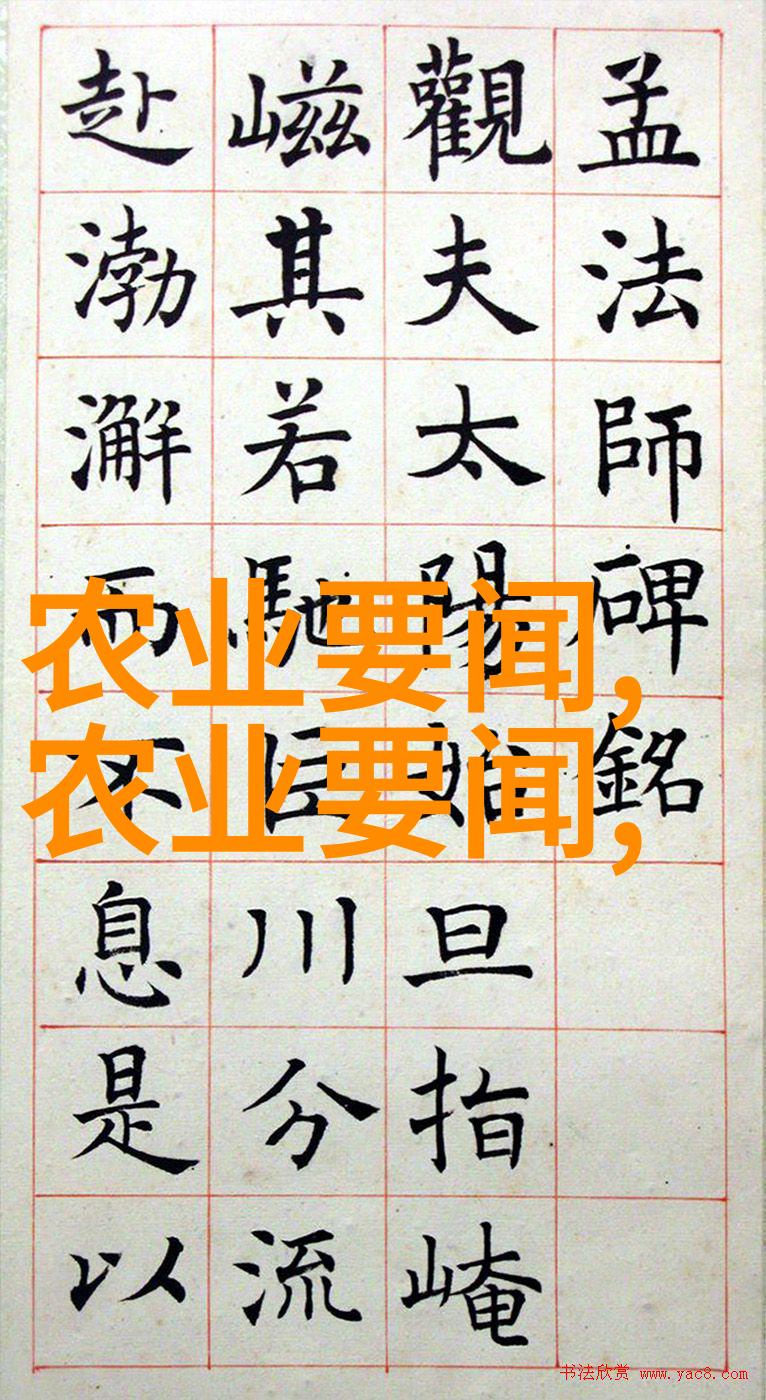 孟法師碑銘
觀夫太陽始旦指崦
嵫其若馳巨川分流
赴渤澥而不息是以
农业要闻,
农业要闻,
书法欣赏 www.yac8.com